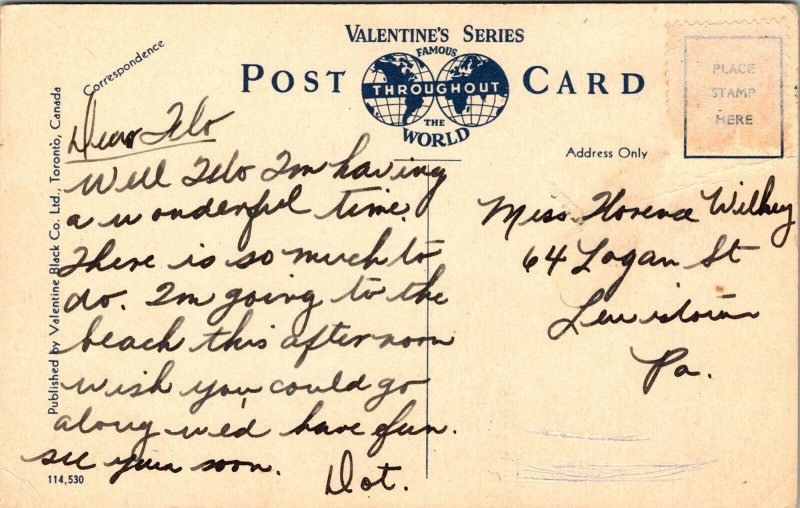 VALENTINE'S SERIES
FAMOUS
POST THROUGHOUT CARD
THE
WORLD
PLACE
STAMP
HERE
Address Only
Correspondence
Published by Valentine Black Co. Ltd., Toronto, Canada
Dear Flo
Well Flo Im having
a wonderful time.
There is so much to
do. Im going to the
beach this afternoon
wish you could go
along we'd have fun.
see you soon.
Dot.
114,530
Miss Florence Wilkey
64 Logan St
Lewistown
Pa.